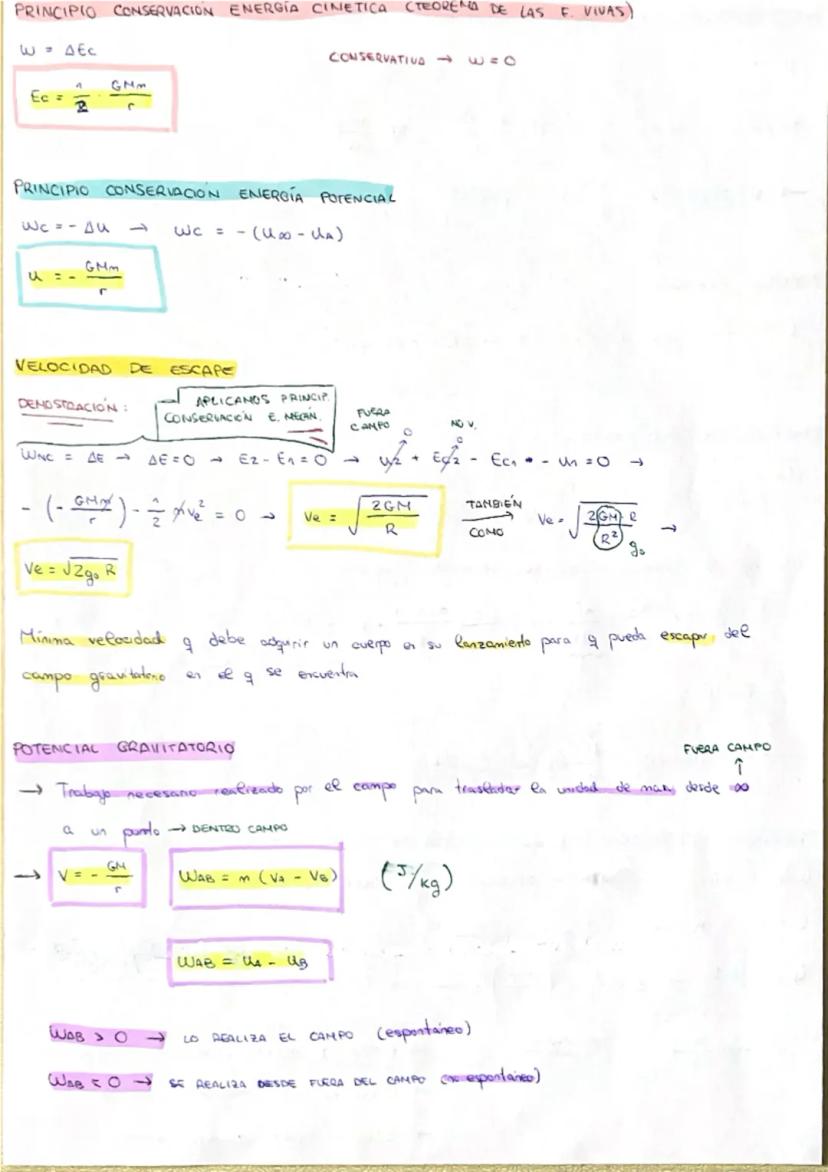 PRINCIPIO CONSERVACIÓN ENERGÍA CINÉTICA (TEOREMA DE LAS F. VIVAS)
W = ΔEc
CONSERVATIVA → W = 0
Ec = 1/2 · GMm/r
PRINCIPIO CONSERVACIÓN ENERGÍA POTENCIAL
Wc = - ΔU → Wc = - (U∞ - UA)
U = - GMm/r
VELOCIDAD DE ESCAPE
DEMOSTRACIÓN:
APLICAMOS PRINCIP.
CONSERVACIÓN E. MECÁN.
FUERA
CAMPO
NO V.
0
0
WNC = ΔE → ΔE = 0 → E2 - E1 = 0 → U2 + Ec2 - Ec1 - U1 = 0 →
- (- GMm/r) - 1/2 m ve² = 0 → Ve = √(2GM/R) TAMBIÉN COMO Ve = √(2GM·R/R²) g₀ →
Ve = √2g₀R
Mínima velocidad q debe adquirir un cuerpo en su lanzamiento para q pueda escapar del
campo gravitatorio en el q se encuentra
POTENCIAL GRAVITATORIO
FUERA CAMPO
↑
→ Trabajo necesario realizado por el campo para trasladar la unidad de masa desde ∞
a un punto → DENTRO CAMPO
→ V = - GM/r WAB = m (VA - VB) (J/kg)
WAB = UA - UB
WAB > 0 → LO REALIZA EL CAMPO (espontáneo)
WAB < 0 → SE REALIZA DESDE FUERA DEL CAMPO (no espontáneo)